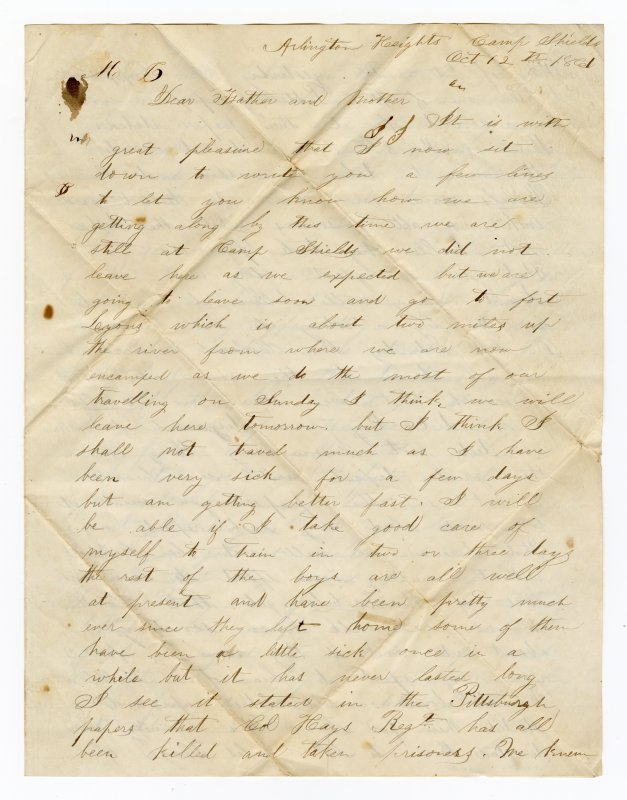 Arlington Heights Camp Shields
Oct 12th 1861
Dear Father and Mother
It is with
great pleasure that I now sit
down to write you a few lines
to let you know how we are
getting along by this time we are
still at Camp Shields we did not
leave here as we expected but we are
going to leave soon and go to fort
Lyons which is about two miles up
the river from where we are now
encamped as we do the most of our
travelling on Sunday I think we will
leave here tomorrow but I think I
shall not travel much as I have
been very sick for a few days
but am getting better fast. I will
be able if I take good care of
myself to train in two or three days
the rest of the boys are all well
at present and have been pretty much
ever since they left home some of them
have been a little sick once in a
while but it has never lasted long
I see it stated in the Pittsburgh
papers that Col Hays Regt has all
been killed and taken prisoners. We knew